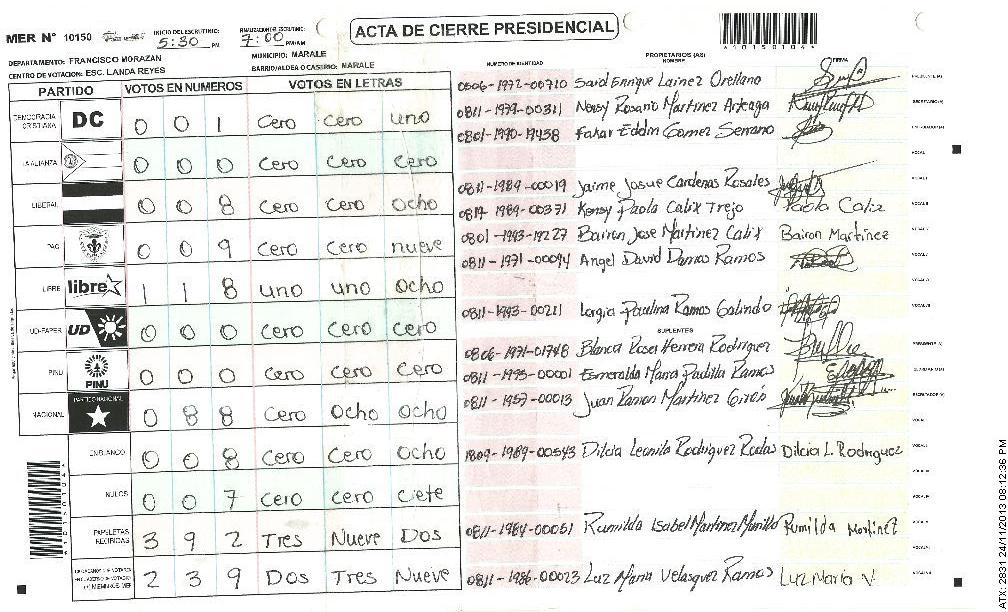 MER N° 10150 INICIO DEL ESCRUTINIO: 5:30 PM FINALIZACION ESCRUTINIO: 7:00 PM/AM ACTA DE CIERRE PRESIDENCIAL
DEPARTAMENTO: FRANCISCO MORAZAN MUNICIPIO: MARALE
CENTRO DE VOTACION: ESC. LANDA REYES BARRIO/ALDEA O CASERIO: MARALE
PARTIDO VOTOS EN NUMEROS VOTOS EN LETRAS
DEMOCRACIA CRISTIANA DC 0 0 1 cero cero uno
LA ALIANZA 0 0 0 cero cero cero
LIBERAL 0 0 8 cero cero ocho
PAC 0 0 9 cero cero nueve
LIBRE libre 1 1 8 uno uno ocho
UD-FAPER UD 0 0 0 cero cero cero
PINU PINU 0 0 0 cero cero cero
NACIONAL PARTIDO NACIONAL 0 8 8 cero ocho ocho
EN BLANCO 0 0 8 cero cero ocho
NULOS 0 0 7 cero cero ciete
PAPELETAS RECIBIDAS 3 9 2 Tres Nueve Dos
2 3 9 Dos Tres Nueve
NUMERO DE IDENTIDAD PROPIETARIOS (AS) NOMBRE FIRMA
0506-1972-00710 Said Enrique Lainez Orellano PRESIDENTE (A)
0811-1979-00311 Nessy Rosario Martinez Arteaga SECRETARIO (A)
0801-1990-19458 Fakar Eddin Gomez Serrano
0811-1989-00019 Jaime Josue Cardenas Rosales
1989-00371 Kensy Paola Calix Trejo Paola Calix
0801-1993-19227 Bairon Jose Martinez Calix Bairon Martinez
0811-1971-00094 Angel David Damas Ramos
0811-1993-00211 Paulina Ramos Galindo
SUPLENTES
0806-1971-01748 Blanca Rosa Herrera Rodriguez PRESIDENTE (A)
0811-1995-00001 Esmeralda Maria Padilla Ramos
0811-1957-00013 Juan Ramon Martinez Girón
1809-1989-00543 Dilcia Leonila Rodriguez Rodas Dilcia L. Rodriguez
0811-1984-00051 Rumilda Isabel Martinez Murillo Rumilda Martinez
0811-1986-00023 Luz Maria Velasquez Ramos Luz Maria V.
ATX: 2931 24/11/2013 08:12:36 PM